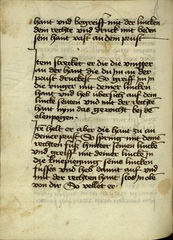 hant vnd begreiff mit der lincken
dein rechte vnd druck mit beden
sein hant vast an dein prust
Item strecket er die die vinger
an der hant die du Im an der
prust druckest So greiff Im in
die vinger mit deiner lincken
hant vnd heb vbersich auff dein
lincke seitten vnd mit der rechten
hant nym das gewicht bey de
elenpogen
Itē helt er aber die hat zu an
deiner prust So spring mit dem
rechten fuß hintter seinen lincken
vnd greiff mit deiner lincken In
die kniepiegung seins lincken
fusses vnd heb damit auff vnd
mit der rechten hant stoß In ob
von dir So velt er